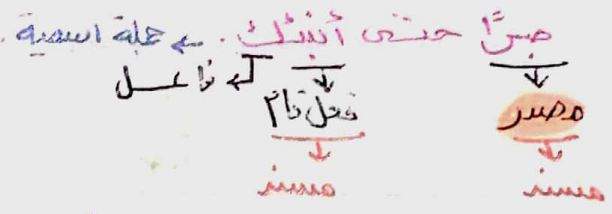 صبرًا حتى أنبئك. ← جملة اسمية.
↓ ↓ ← فاعل
مصدر فعل تام
↓ ↓
مسند مسند